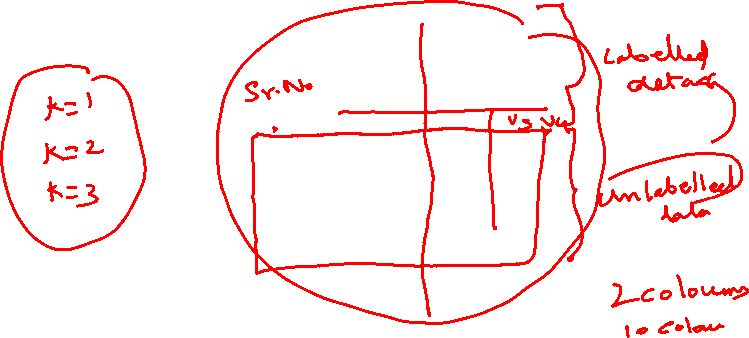 K=1
K=2
K=3
Sr.No
V3 V4
Labelled
Unlabelled
data
2 coloums
10 colou